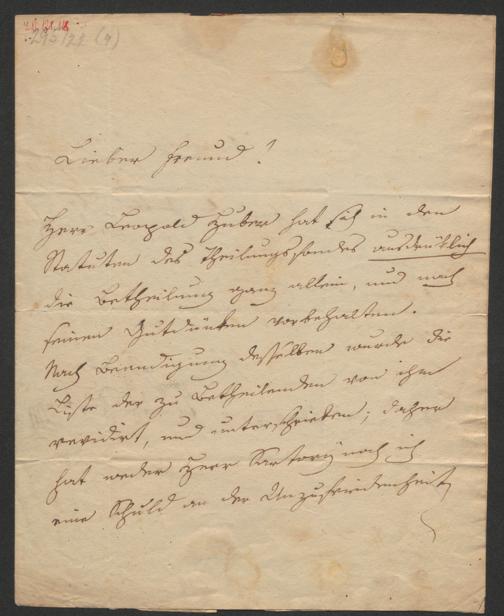 Lieber Freund!
Herr Leopold Huber hat sich in den
Statuten des Theilungsfondes ausdrüklich
die Betheilung ganz allein, und nach
seinem Gutdünken vorbehalten.
Nach Beendigung desselben wurde die
Liste der zu Betheilenden von ihm
revidirt, und unterschrieben; daher
hat weder Herr Sartory noch ich
eine Schuld an der Unzufriedenheit